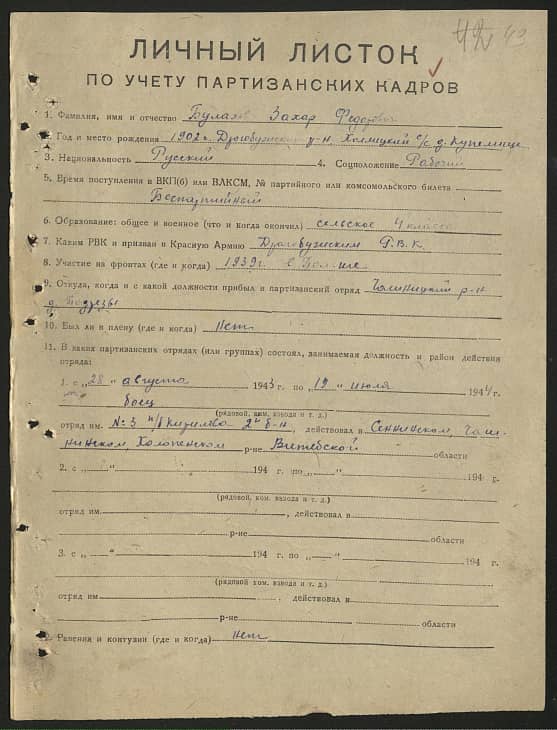 ЛИЧНЫЙ ЛИСТОК
ПО УЧЕТУ ПАРТИЗАНСКИХ КАДРОВ
1. Фамилия, имя и отчество Захар Федорович
2. Год и место рождения 1902 г. р-н, с/с д.
3. Национальность Русский 4. Соцположение Рабочий
5. Время поступления в ВКП(б) или ВЛКСМ, № партийного или комсомольского билета
Беспартийный
6. Образование: общее и военное (что и когда окончил) сельское 4 класса
7. Каким РВК и призван в Красную Армию Р.В.К.
8. Участие на фронтах (где и когда) 1939 г. в
9. Откуда, когда и с какой должности прибыл в партизанский отряд р-н
д.
10. Был ли в плену (где и когда) Нет
11. В каких партизанских отрядах (или группах) состоял, занимаемая должность и район действия
отряда:
1. с „28“ августа 1943 г. по „19“ июля 1944 г.
боец
(рядовой, ком. взвода и т. д.)
отряд им. № 3 2й б-н, действовал в Сеннинском, Чаш-
никском, р-не Витебской области
2. с „ “ 194 г. по „ “ 194 г.
(рядовой, ком. взвода и т. д.)
отряд им. , действовал в
р-не области
3. с „ “ 194 г. по „ “ 194 г.
(рядовой ком. взвода и т. д.)
отряд им , действовал в
р-не области
Ранения и контузии (где и когда) Нет